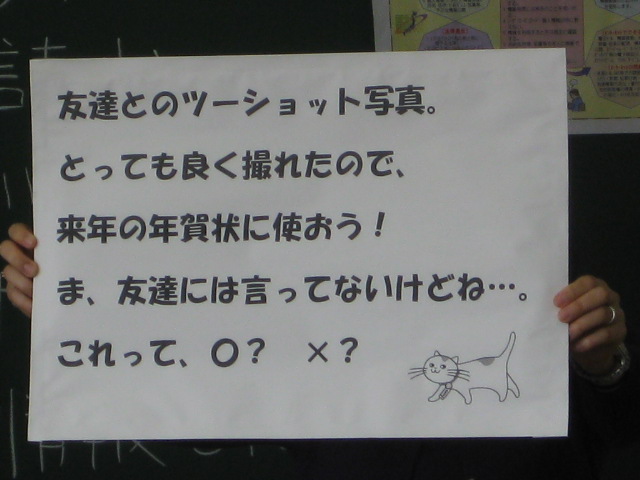 友達とのツーショット写真。
とっても良く撮れたので、
来年の年賀状に使おう！
ま、友達には言ってないけどね…。
これって、〇？　×？